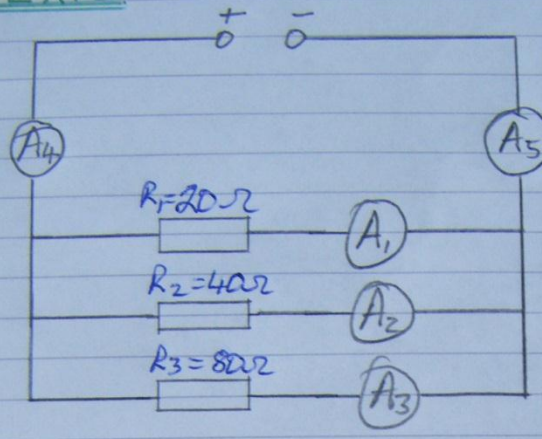 + −
A4 A5
R1=20Ω
A1
R2=40Ω
A2
R3=80Ω
A3